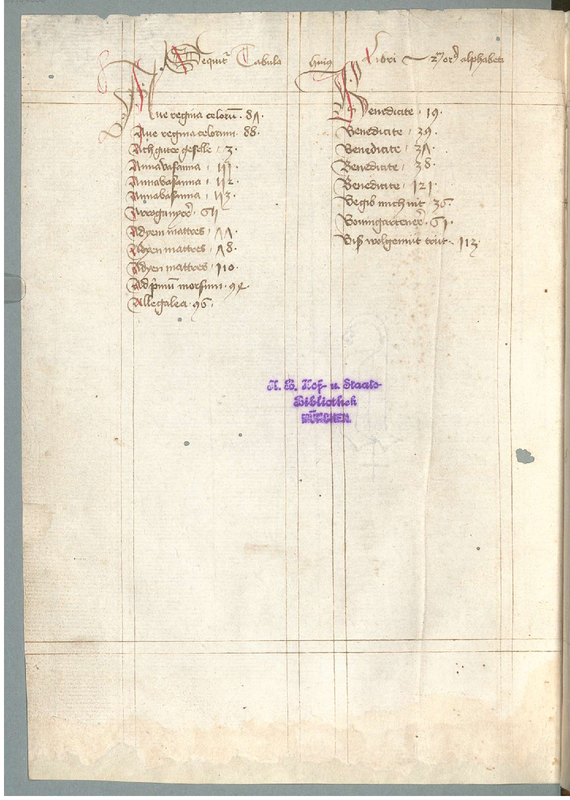 Sequitr Tabula huius Libri
alphabeti
Aue regina celorū. 87.
Aue regina celorum. 88.
Ach guter geselle. 3.
Annavasanna. 111.
Annavasanna. 112.
Annavasanna. 113.
Adyen mattres. 77.
Adyen mattres. 78.
Adyen mattres. 110.
Ad pmū morsum. 94
Allegalea. 96.
Benedicite. 19.
Benedicite. 39.
Benedicite. 37.
Benedicite. 38.
Benedicite. 121.
Begib mich nit 36.
Boumgartener. 61.
Bis wolgemut
K. B. Hof- u. Staats-
Bibliothek
MÜNCHEN.